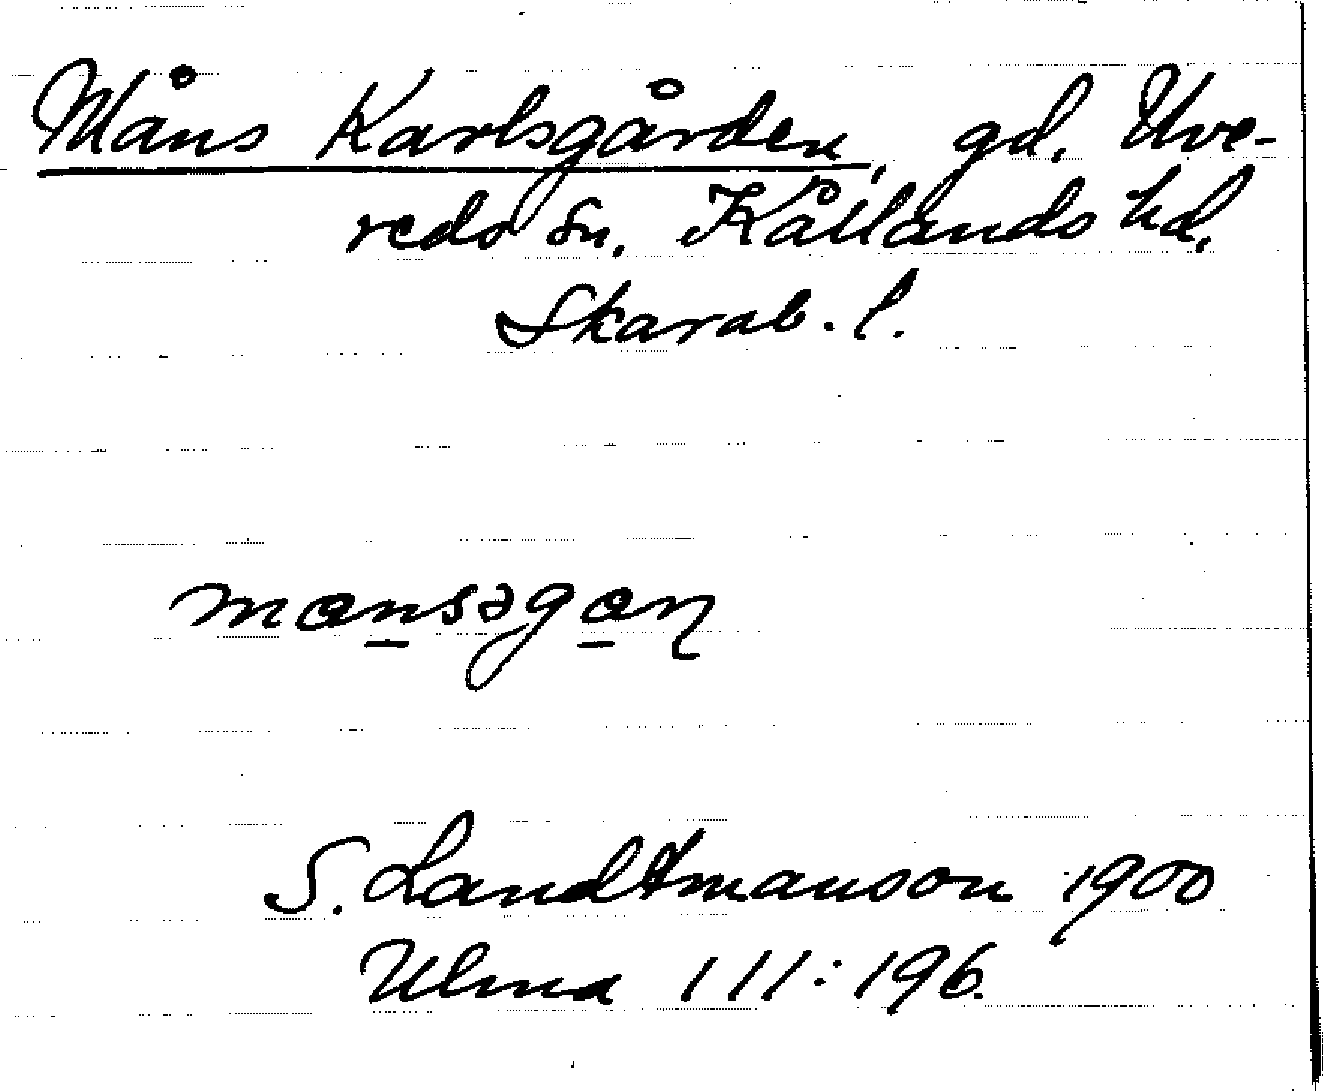 Måns Karlsgården, gd. Uve-
reds sn. Kållands hd.
Skarab. l.
mansəgan
S. Landtmanson 1900
Ulma 111:196.